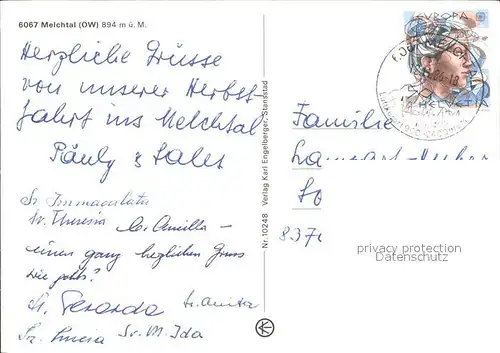 6067 Melchtal (OW) 894 m ü. M.
Herzliche Grüsse
von unserer Herbst-
fahrt ins Melchtal
Päuly & Sales
Sr. Immaculata
Sr. Theresia
einen ganz herzlichen Gruss
wie gehts?
Sr. Gerarda Sr. Anita
Sr. Lucia Sr. M. Ida
Nr. 10248 Verlag Karl Engelberger, Stansstad
EUROPA
HELVETIA
Familie
837
privacy protection
Datenschutz